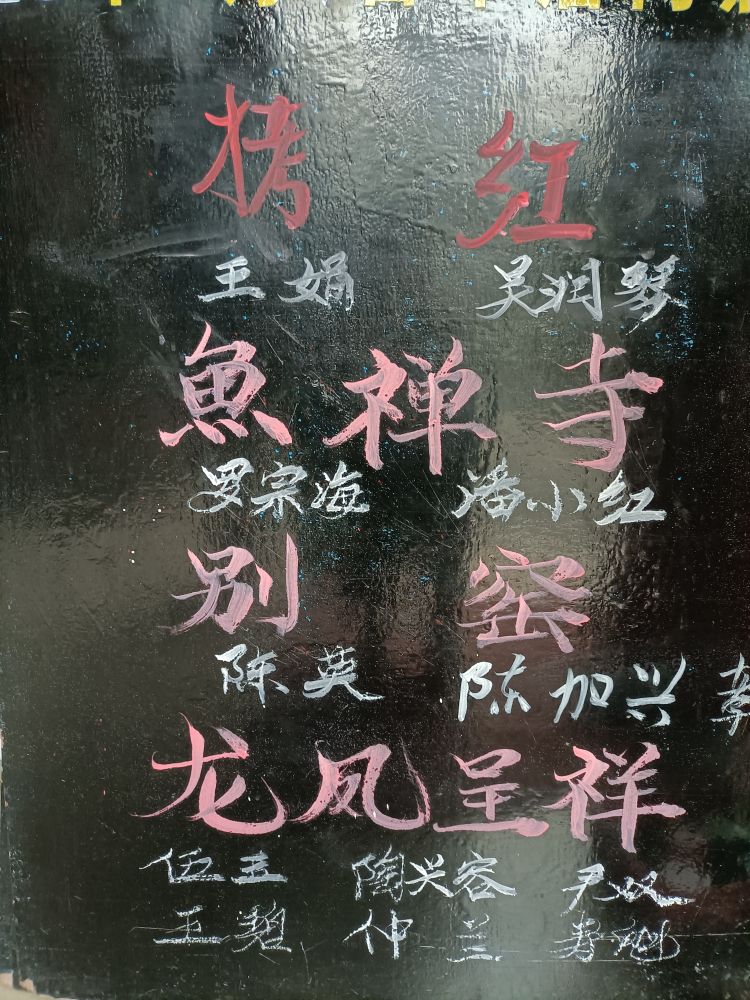 拷 红
王娟 吴润琴
魚禅寺
罗宗海 潘小红
别窑
陈英 陈加兴
龙凤呈祥
伍王 陶兴容
王碧 仲兰